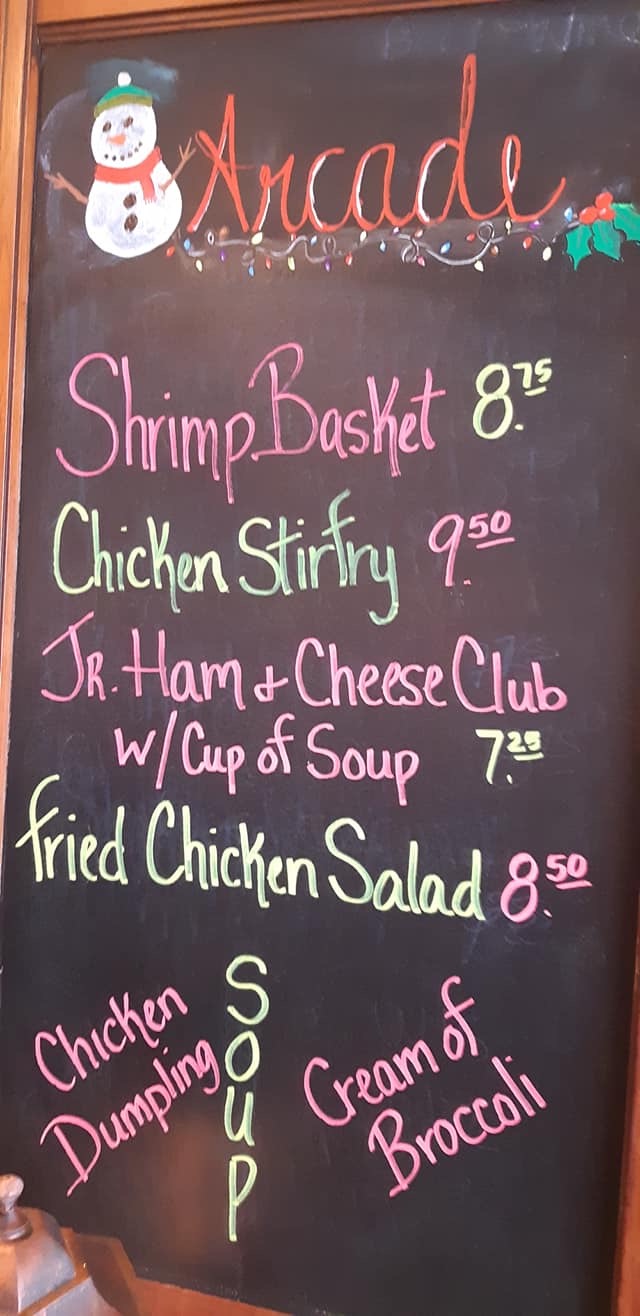 Arcade
Shrimp Basket 8.75
Chicken Stirfry 9.50
Jr. Ham & Cheese Club
w/ Cup of Soup 7.25
Fried Chicken Salad 8.50
SOUP
Chicken
Dumpling
Cream of
Broccoli